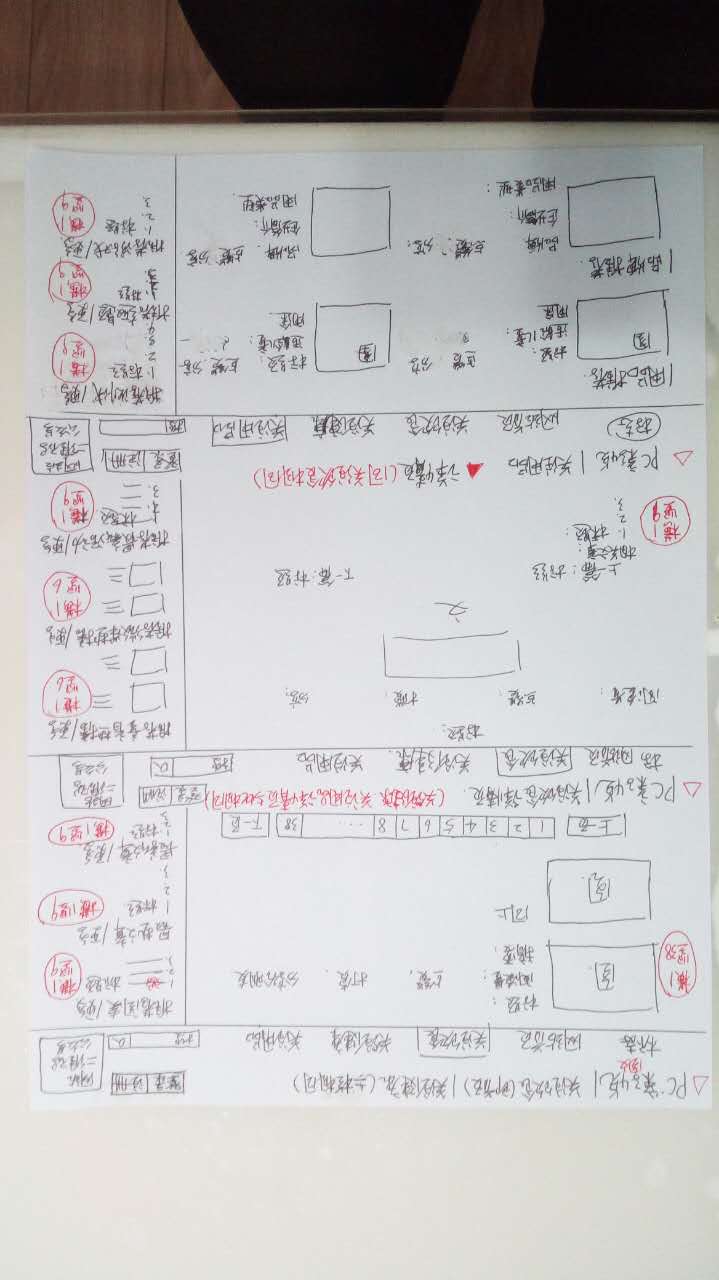 △ PC 亲子4点 | 关注饮食(即首页) | 关注健康(二栏相同)
登录 注册
网站
二维码
公众号
标志 网站首页 关注饮食 关注健康 关注用品
横1
竖38
图
标题:
阅读量: 点赞, 打赏, 分享给朋友
摘要:
图
同上
上一页 1 2 3 4 5 6 7 8 .... 38 下一页
推荐阅读/更多
1. 标题
2.
3.
横1
竖9
最热文章/更多
1 标题
2.
3.
横1竖9
最新文章/更多
1. 标题
横1竖9
△ PC 亲子4点 | 关注饮食详情页. (关注健康 关注用品详情页与此相同)
登录 注册
网站
二维码
公众号
标 网站首页 关注饮食 关注健康 关注用品
标题:
阅读量: 点赞: 打赏: 分享:
文
上一篇: 标题 下一篇: 标题
相关文章:
1. 标题:
2.
3.
横1
竖9
横1
竖6
推荐微课热播/更多
横1
竖6
推荐最新活动/更多
标题
横1
竖9
△ PC 亲子4点 | 关注用品 ▲ 详情页(同关注饮食相同)
登录 注册
网站
二维码
公众号
标志 网站首页 关注饮食 关注健康 关注用品
|用品推荐.
图
标题: 点赞. 分享
适龄儿童:
用途
图
标题: 点赞. 分享
适龄儿童:
用途
|品牌推荐.
品牌 点赞: 分享:
企业简介:
用品类型:
品牌 点赞 分享
企业简介:
用品类型.
推荐测试/更多
1. 标题
2.
3.
4.
横1
竖9
推荐趣题/更多
标题
横1
竖9
推荐游戏/更多
1. 标题
2.
3.
横1
竖9